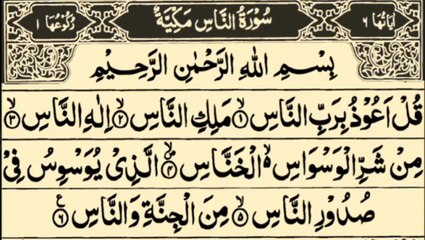 اٰيَاتُهَا ٦ سُوْرَةُ النَّاسِ مَكِّيَّةٌ رُكُوْعُهَا ١
بِسْمِ اللهِ الرَّحْمٰنِ الرَّحِيْمِ
قُلْ اَعُوْذُ بِرَبِّ النَّاسِ ۙ﴿۱﴾ مَلِكِ النَّاسِ ۙ﴿۲﴾ اِلٰهِ النَّاسِ ۙ﴿۳﴾
مِنْ شَرِّ الْوَسْوَاسِ ۙ الْخَنَّاسِ ۙ﴿۴﴾ الَّذِىْ يُوَسْوِسُ فِىْ
صُدُوْرِ النَّاسِ ۙ﴿۵﴾ مِنَ الْجِنَّةِ وَالنَّاسِ ﴿۶﴾ ع